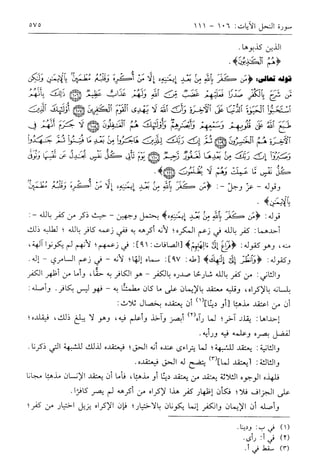 سورة النحل الآيات: ١٠٦ - ١١١ ٥٧٥
الذين كذبوها.
﴿هُمُ الْكَذِبُونَ﴾.
قوله تعالى: ﴿مَن كَفَرَ بِاللَّهِ مِنْ بَعْدِ إِيمَنِهِ إِلَّا مَنْ أُكْرِهَ وَقَلْبُهُ مُطْمَئِنٌّ بِالْإِيمَنِ وَلَكِن
مَّن شَرَحَ بِالْكُفْرِ صَدْرًا فَعَلَيْهِمْ غَضَبٌ مِّنَ اللَّهِ وَلَهُمْ عَذَابٌ عَظِيمٌ ذَلِكَ بِأَنَّهُمُ
اسْتَحَبُّوا الْحَيَوةَ الدُّنْيَا عَلَى الْآخِرَةِ وَأَنَّ اللَّهَ لَا يَهْدِى الْقَوْمَ الْكَفِرِينَ أُولَئِكَ الَّذِينَ
طَبَعَ اللَّهُ عَلَى قُلُوبِهِمْ وَسَمْعِهِمْ وَأَبْصَرِهِمْ وَأُولَئِكَ هُمُ الْغَفِلُونَ لَا جَرَمَ أَنَّهُمْ فِى
الْآخِرَةِ هُمُ الْخَسِرُونَ ثُمَّ إِنَّ رَبَّكَ لِلَّذِينَ هَاجَرُوا مِنْ بَعْدِ مَا فُتِنُوا ثُمَّ جَهَدُوا
وَصَبَرُوا إِنَّ رَبَّكَ مِنْ بَعْدِهَا لَغَفُورٌ رَّحِيمٌ يَوْمَ تَأْتِى كُلُّ نَفْسٍ تُجَدِلُ عَن نَّفْسِهَا وَتُوَفَّى
كُلُّ نَفْسٍ مَّا عَمِلَتْ وَهُمْ لَا يُظْلَمُونَ﴾.
وقوله - عز وجل -: ﴿مَن كَفَرَ بِاللَّهِ مِنْ بَعْدِ إِيمَنِهِ إِلَّا مَنْ أُكْرِهَ وَقَلْبُهُ مُطْمَئِنٌّ
بِالْإِيمَنِ﴾.
قوله: ﴿مَن كَفَرَ بِاللَّهِ مِنْ بَعْدِ إِيمَنِهِ﴾ يحتمل وجهين - حيث ذكر من كفر بالله -:
أحدهما: كفر بالله في زعم المكره؛ لأنه أكرهه به ففي زعمه كافر بالله؛ لطلبه ذلك
منه، وهو كقوله: ﴿فَرَاغَ إِلَى ءَالِهَتِهِمْ﴾ [الصافات: ٩١]: في زعمهم؛ لأنهم لم يكونوا آلهة،
وكقوله: ﴿وَانْظُرْ إِلَى إِلَهِكَ﴾ [طه: ٩٧]: سماه إلهًا؛ لأنه - في زعم السامري - إله.
والثاني: من كفر بالله شارحًا صدره بالكفر - هو الكافر به حقًّا، وأما من أظهر الكفر
بلسانه بالإكراه، وقلبه معتقد بالإيمان على ما كان مطمئنًا به - فهو ليس بكافر. وأصله:
أن من اعتقد مذهبًا [أو دينًا](١) أن يعتقد بخصال ثلاث:
إحداها: يقلد آخر؛ لما رآه(٢) أبصر وأخذ وأعلم فيه، وهو لا يبلغ ذلك، فيقلده؛
لفضل بصره وعلمه فيه ورأيه.
والثانية: يعتقد للشبهة؛ لما يتراءى عنده أنه الحق؛ فيعتقده لذلك للشبهة التي ذكرنا.
والثالثة: [يعتقد لما](٣) يتضح له الحق فيعتقده.
فلهذه الوجوه الثلاثة يعتقد من يعتقد دينًا أو مذهبًا، فأما أن يعتقد الإنسان مذهبًا مجانًا
على الجزاف فلا؛ فكأن إظهار كفر هذا لإكراه من أكرهه لم يصر كافرًا.
وأصله أن الإيمان والكفر إنما يكونان بالاختيار؛ فإن الإكراه يزيل اختيار من كفر؛
(١) في ب: ودينا.
(٢) في أ: رأى.
(٣) سقط في أ.